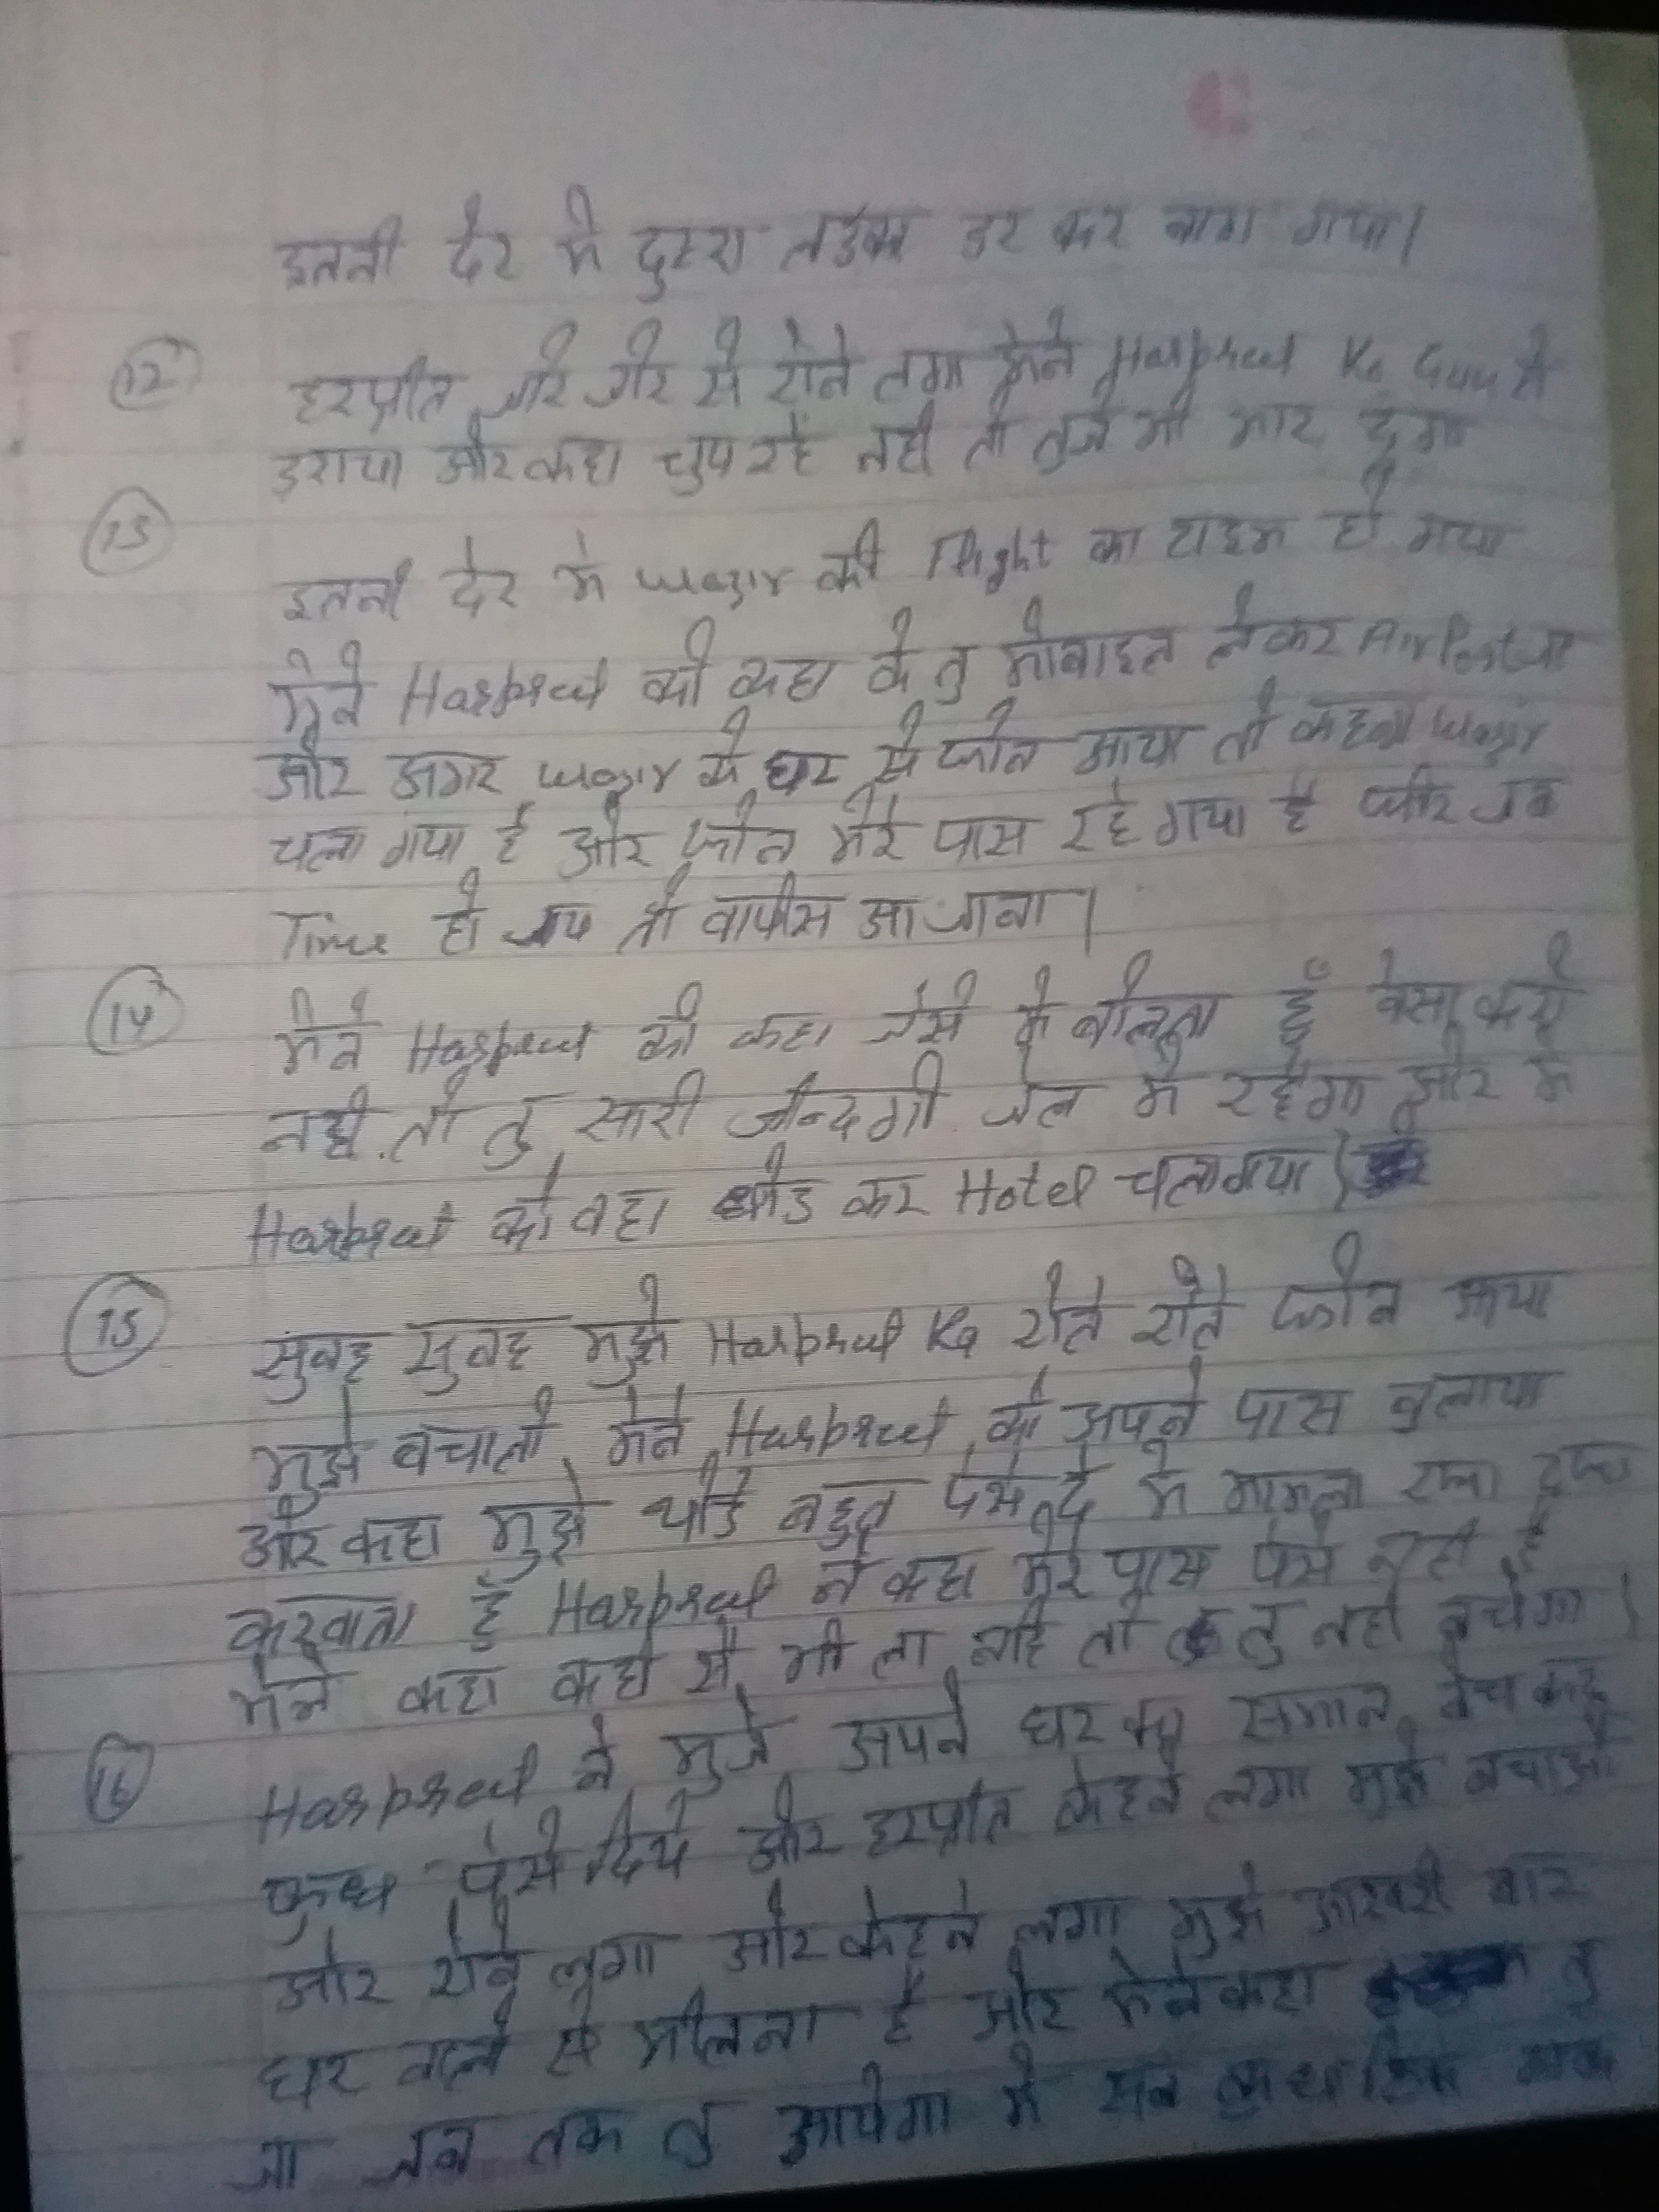 इतनी देर मे दुसरा लडका डर कर भाग गया।
12 हरप्रीत जोर जोर से रोने लगा मेने Harpreet Ko Gun से
डराया और कहा चुप रहे नही तो तुजे भी मार दुंगा
13
इतनी देर मे Wazir की Flight का टाइम हो गया
मेने Harpreet को कहा के तु मोबाइल लेकर AirPort जा
और अगर Wazir के घर से फोन आया तो कहना Wazir
चला गया है और फोन मेरे पास रहे गया है और जब
Time हो जाए तो वापीस आ जाना।
14 मेने Harpreet को कहा जेसे मे बोलता हुँ वेसा करो
नही तो तु सारी जीन्दगी जेल मे रहेगा और मे
Harpreet को वहा छोड कर Hotel चला गया।
15 सुबह सुबह मुझे Harpreet Ka रोते रोते फोन आया
मुझे बचालो मेने Harpreet को अपने पास बुलाया
और कहा मुझे थोडे बहुत पेसे दे मे मामला रफा दफा
करवाता हुँ Harpreet ने कहा मेरे पास पेसे नही है
मेने कहा कही से भी ला नहि तो तु नही बचेगा।
16 Harpreet ने मुजे अपने घर का समान बेच कर
कुछ पेसे दिये और हरप्रीत केहने लगा मुझे बचाओ
और रोने लगा और केहने लगा मुझे आखरी बार
घर वालो से मीलना है और मेने कहा तु
जा जब तक तु आयेगा मे सब कुछ ठिक